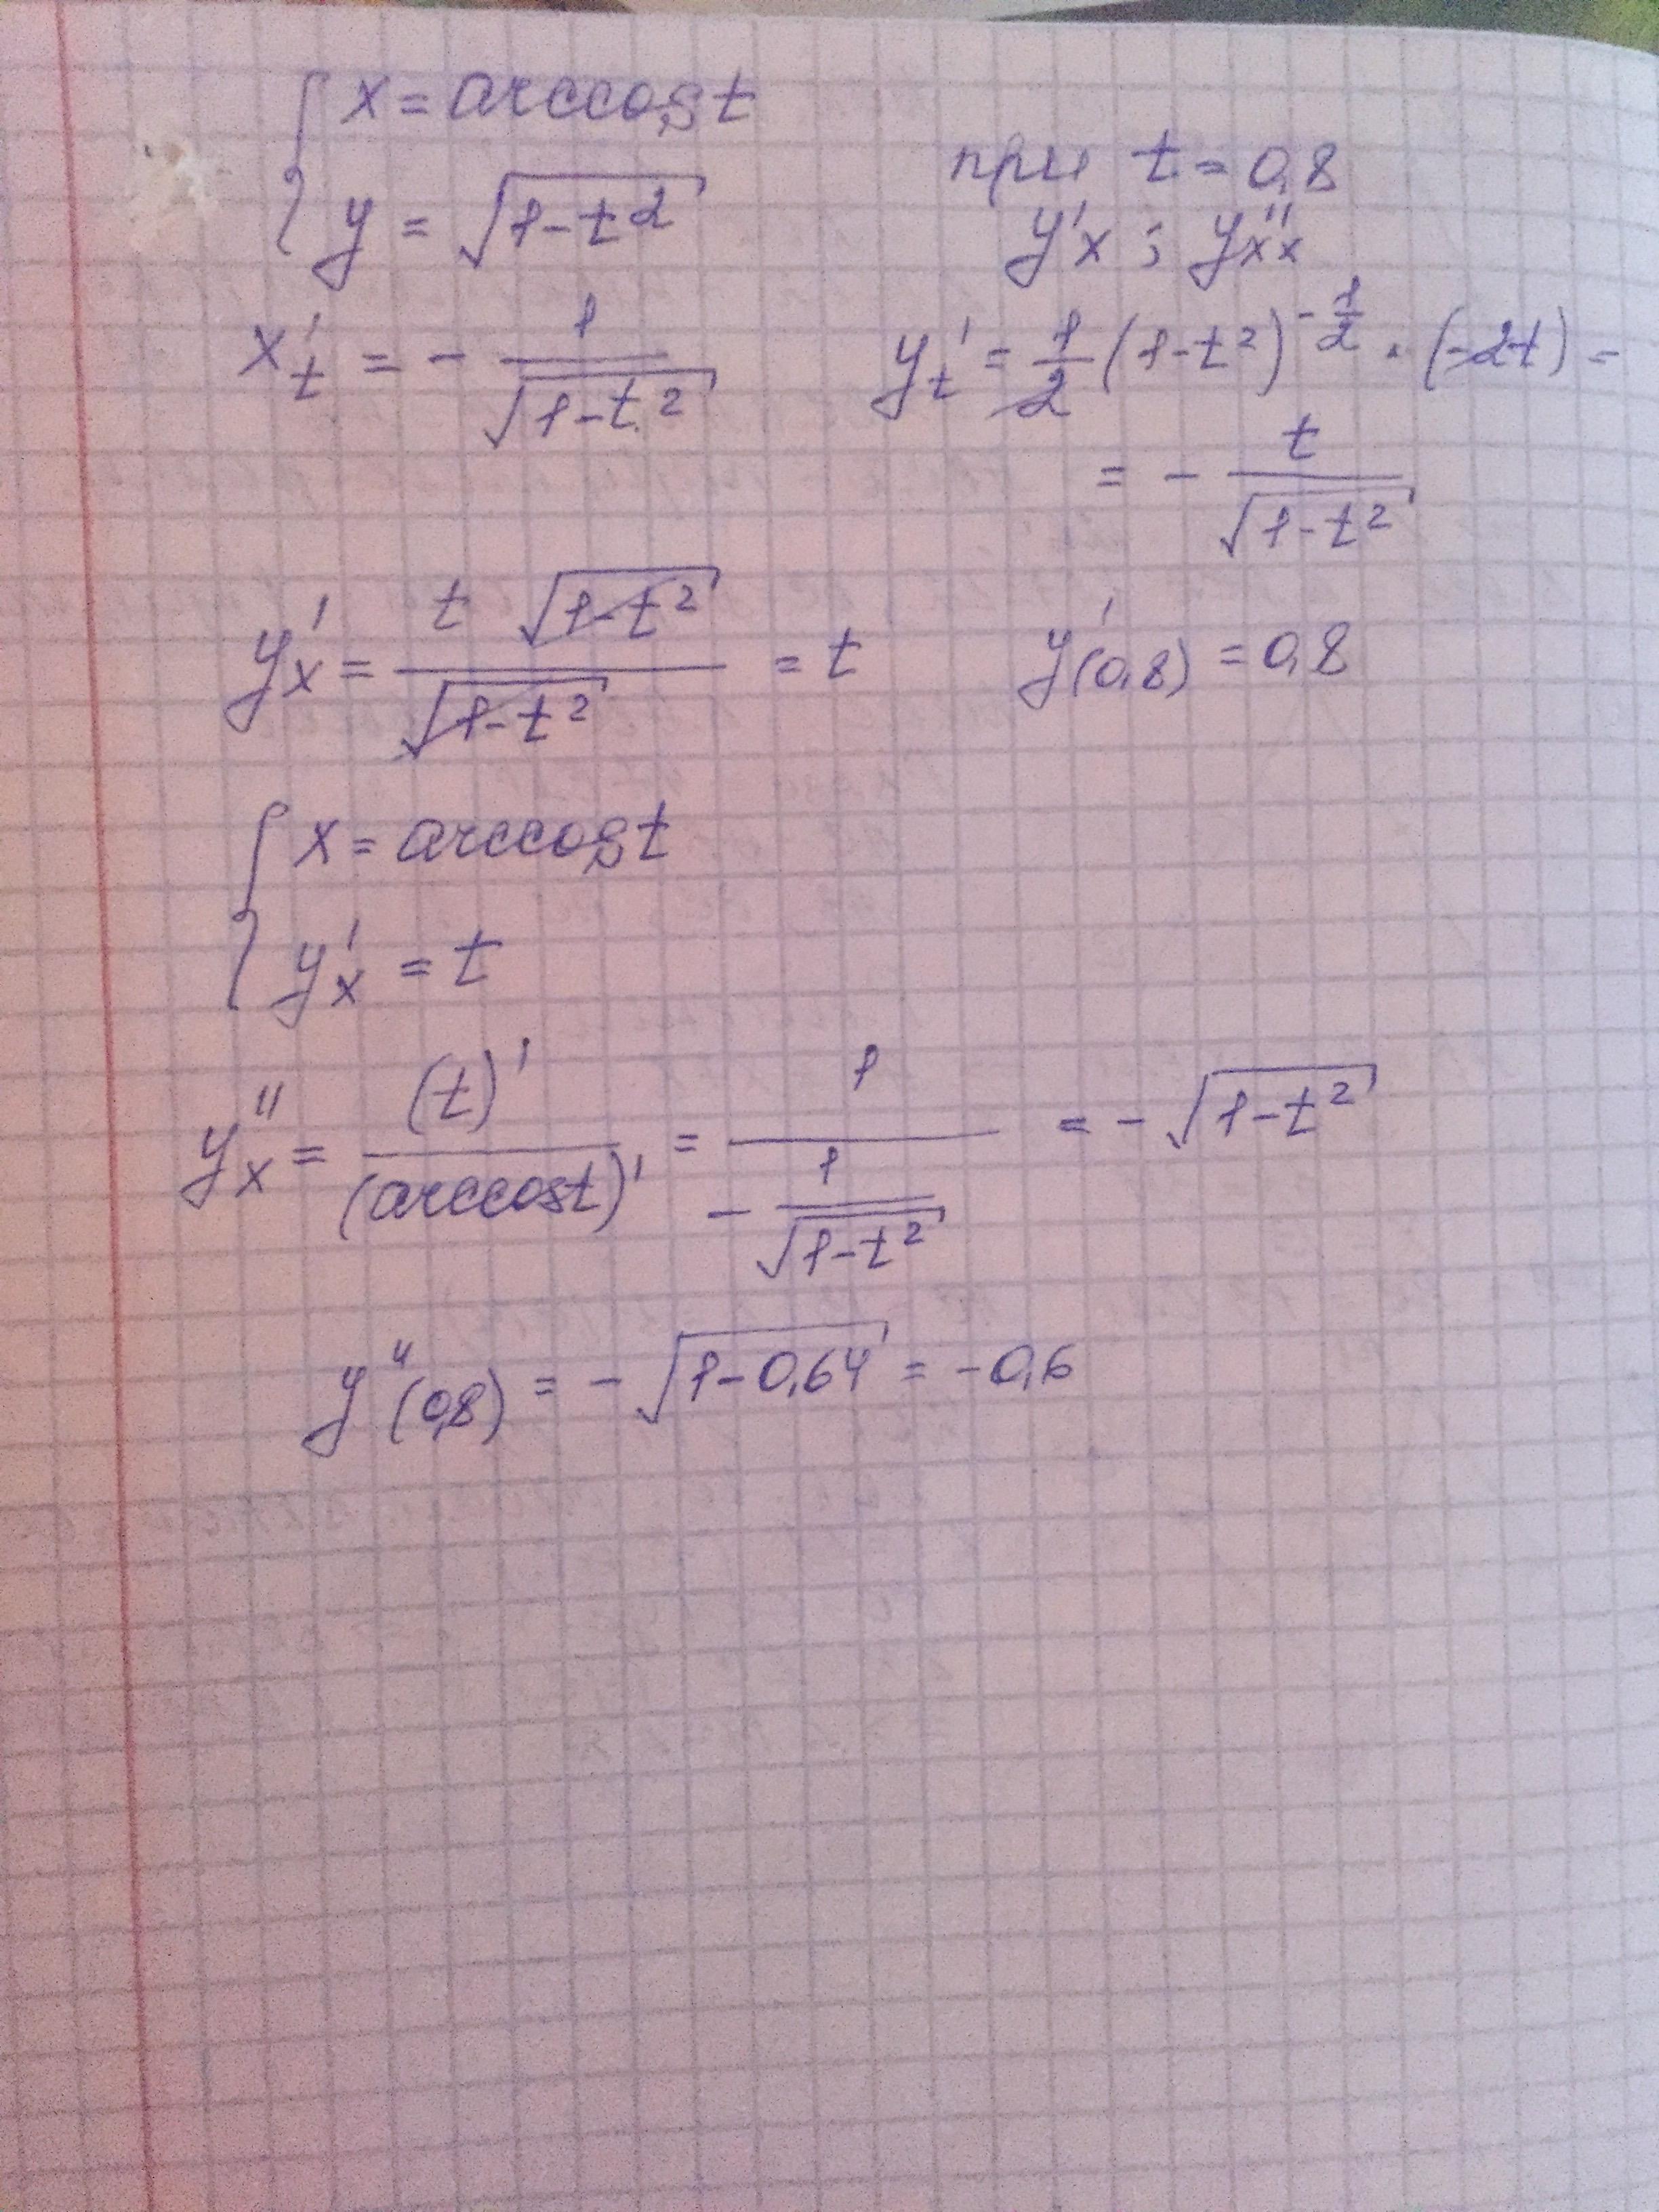 { x = arccos t
y = √(1-t²)
при t = 0,8
y'x ; y''xx
x't = - 1/√(1-t²)
y't = 1/2 (1-t²)^(-1/2) · (-2t) =
= - t/√(1-t²)
y'x = t √(1-t²) / √(1-t²) = t
y'(0,8) = 0,8
{ x = arccos t
y'x = t
y''x = (t)' / (arccost)' = 1 / (- 1/√(1-t²)) = - √(1-t²)
y''(0,8) = - √(1-0,64) = -0,6